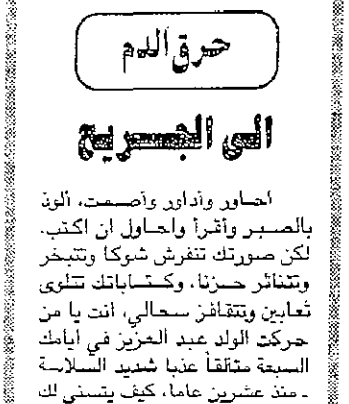 حرق الدم
الى الجريح
احاور وأداور وأصمت، ألوذ
بالصبر وأقرأ واحاول ان اكتب.
لكن صورتك تنفرش شوكا وتتبخر
وتتناثر حزنا، وكتاباتك تتلوى
ثعابين وتتقافز سحالي، أنت يا من
حركت الولد عبد العزيز في أيامك
السبعة متألقاً عذبا شديد السلاسة
ـ منذ عشرين عاما، كيف يتسنى لك